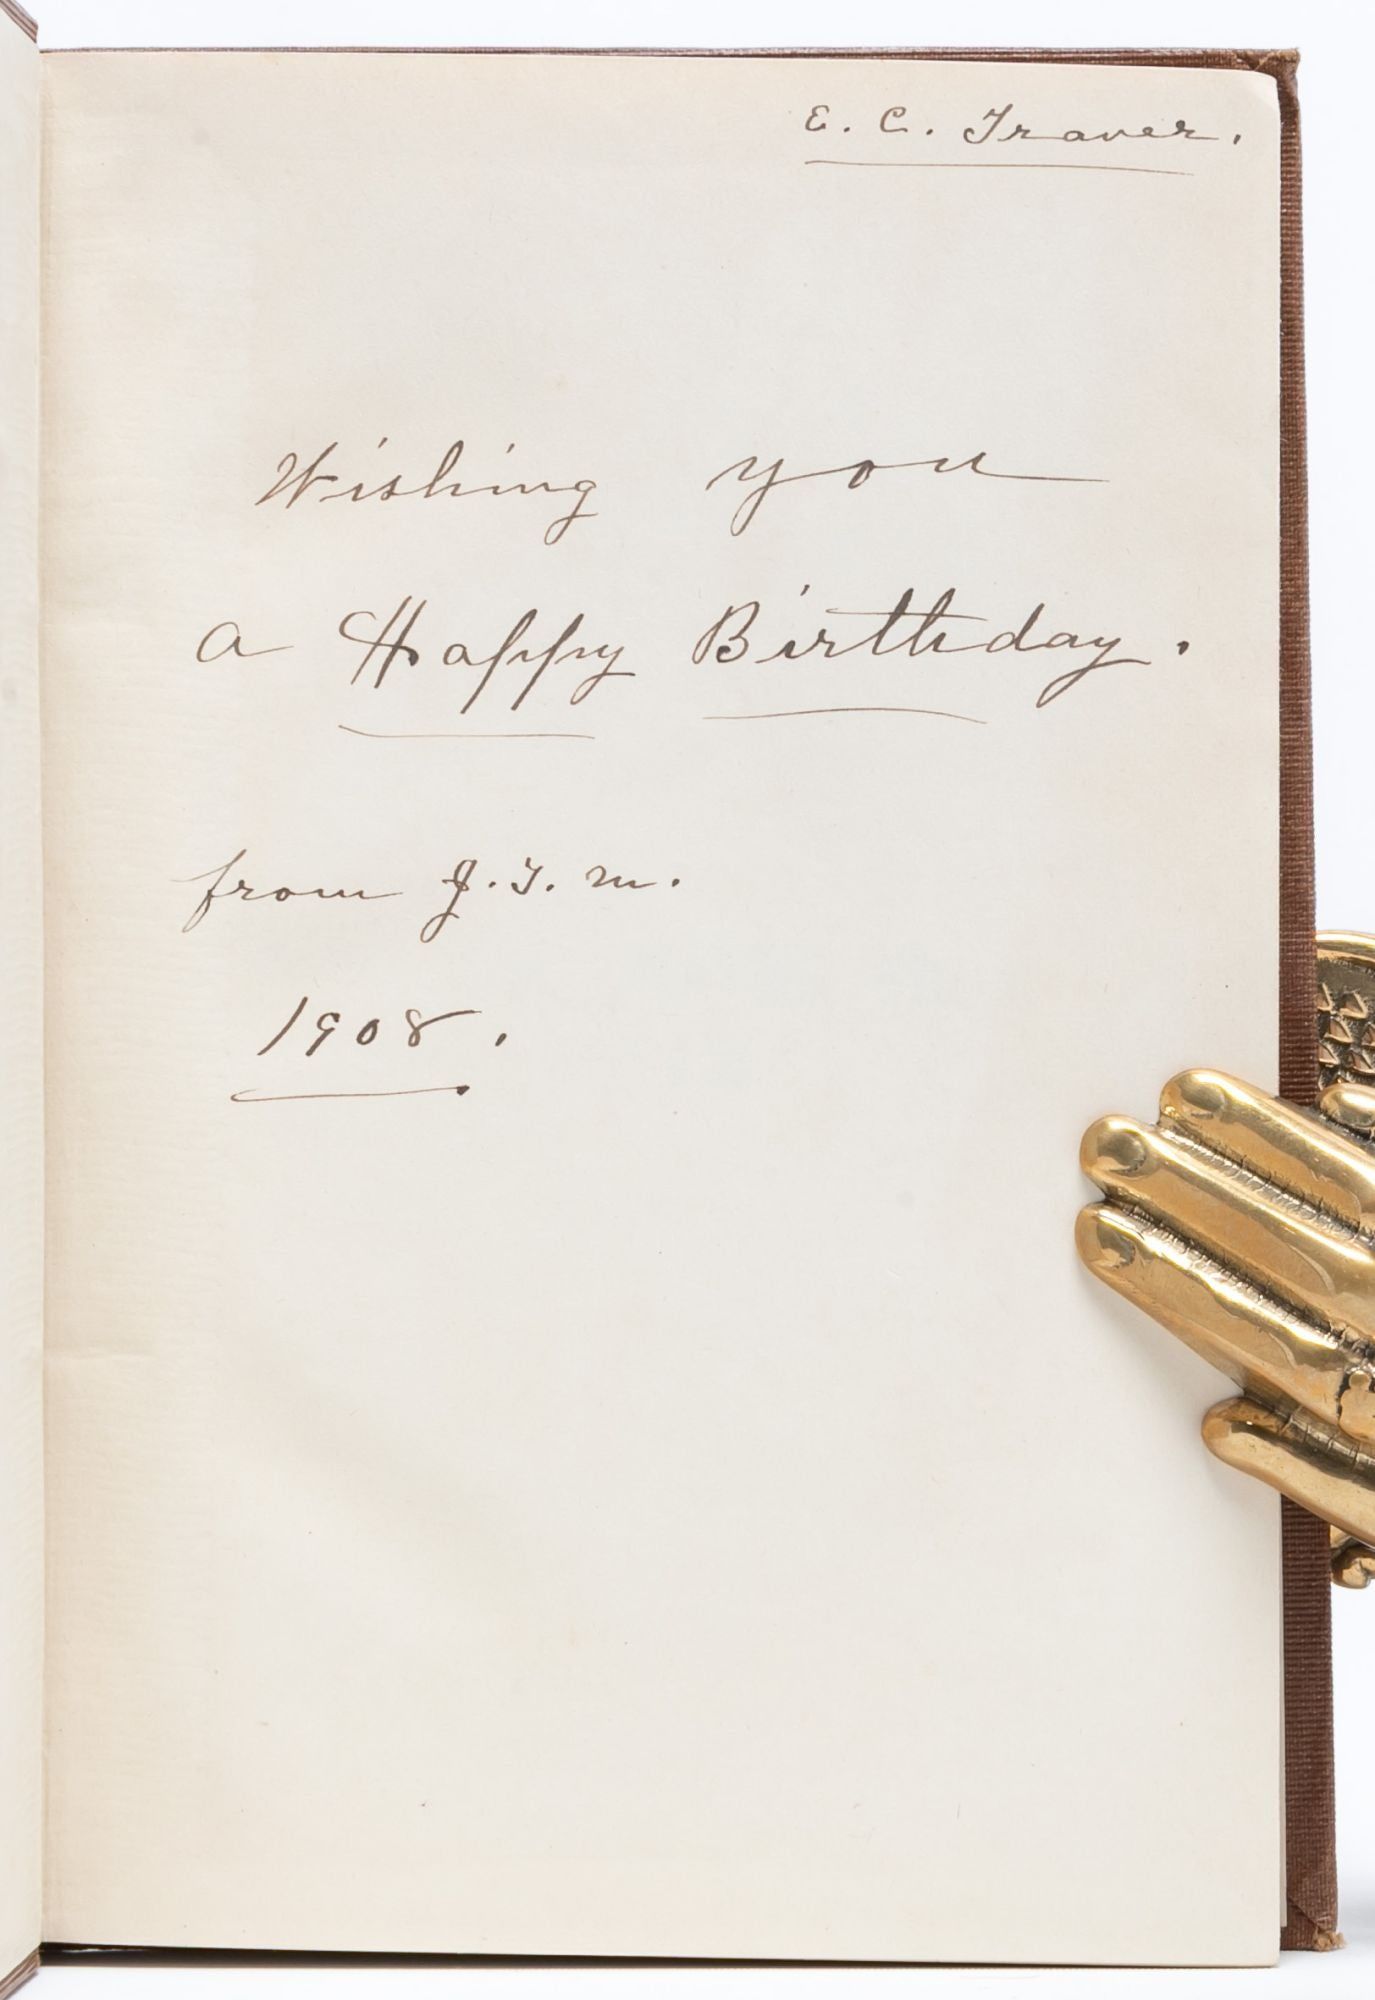 E. C. Traver.
Wishing you
a Happy Birthday.
from J. T. M.
1908.